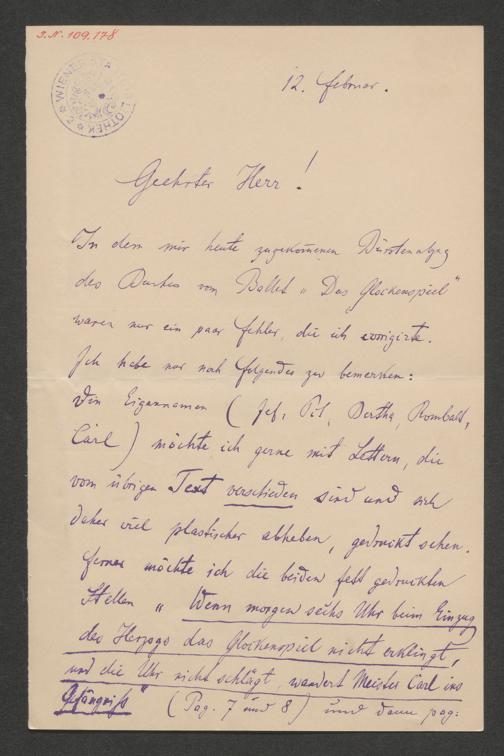 I.N. 109.178
WIENER STADTBIBLIOTHEK
12. Februar.
Geehrter Herr!
In dem mir heute zugekommenen Bürstenabzug
des Buches vom Ballet „Das Glockenspiel"
waren nur ein paar Fehler, die ich corrigirte.
Ich habe nur noch folgendes zu bemerken:
Die Eigennamen (Jef, Pil, Bertha, Rombald,
Carl) möchte ich gerne mit Lettern, die
vom übrigen Text verschieden sind und sich
daher viel plastischer abheben, gedruckt sehen.
Ferner möchte ich die beiden fett gedruckten
Stellen „Wenn morgen sechs Uhr beim Einzug
des Herzogs das Glockenspiel nicht erklingt,
und die Uhr nicht schlägt, wandert Meister Carl ins
Gefängniß" (Pag. 7 und 8) und dann pag: